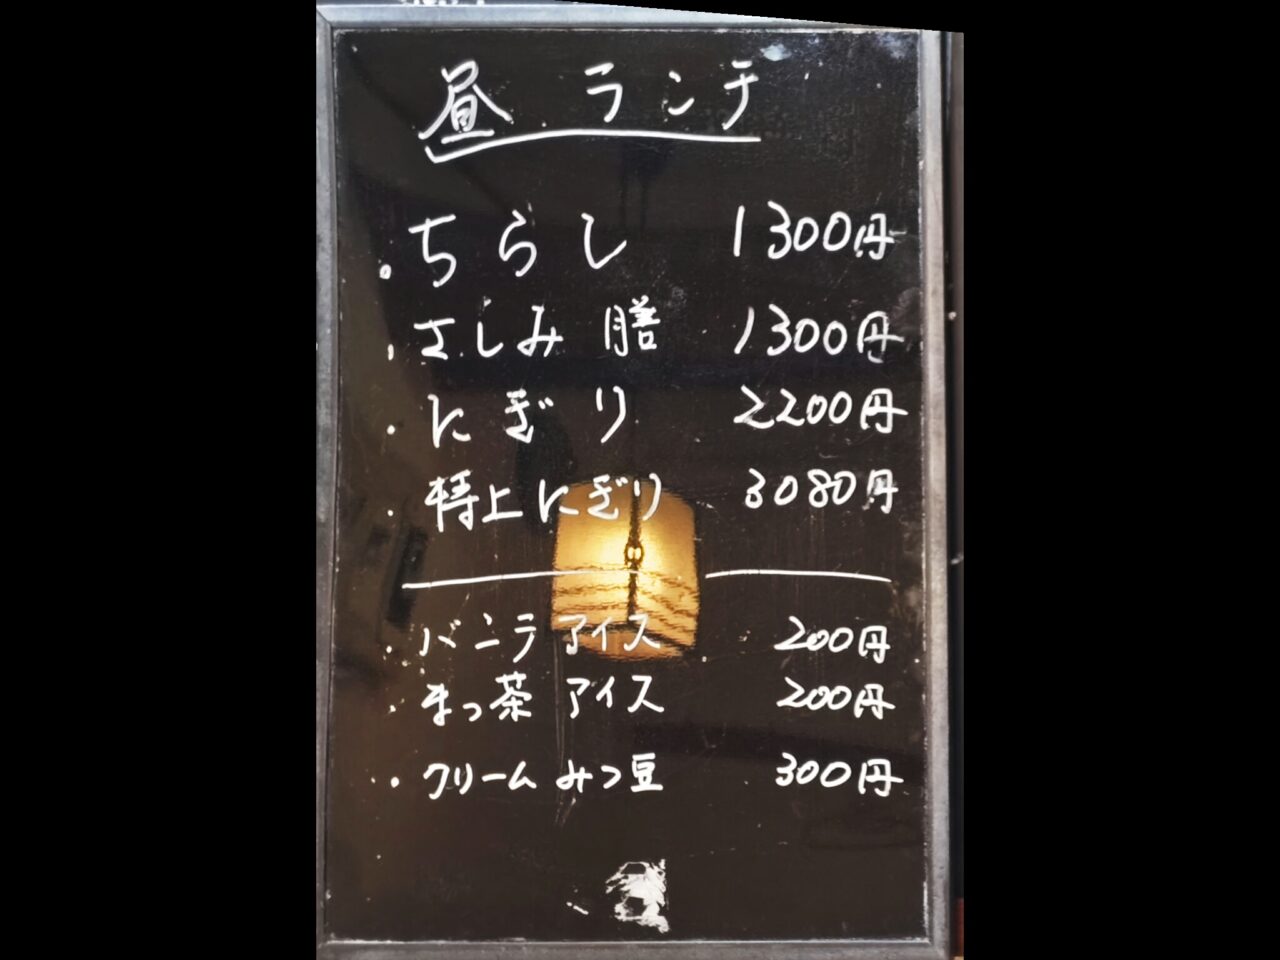 昼 ランチ
・ちらし 1300円
・さしみ膳 1300円
・にぎり 2200円
・特上にぎり 3080円
・バニラアイス 200円
・まっ茶アイス 200円
・クリームみつ豆 300円